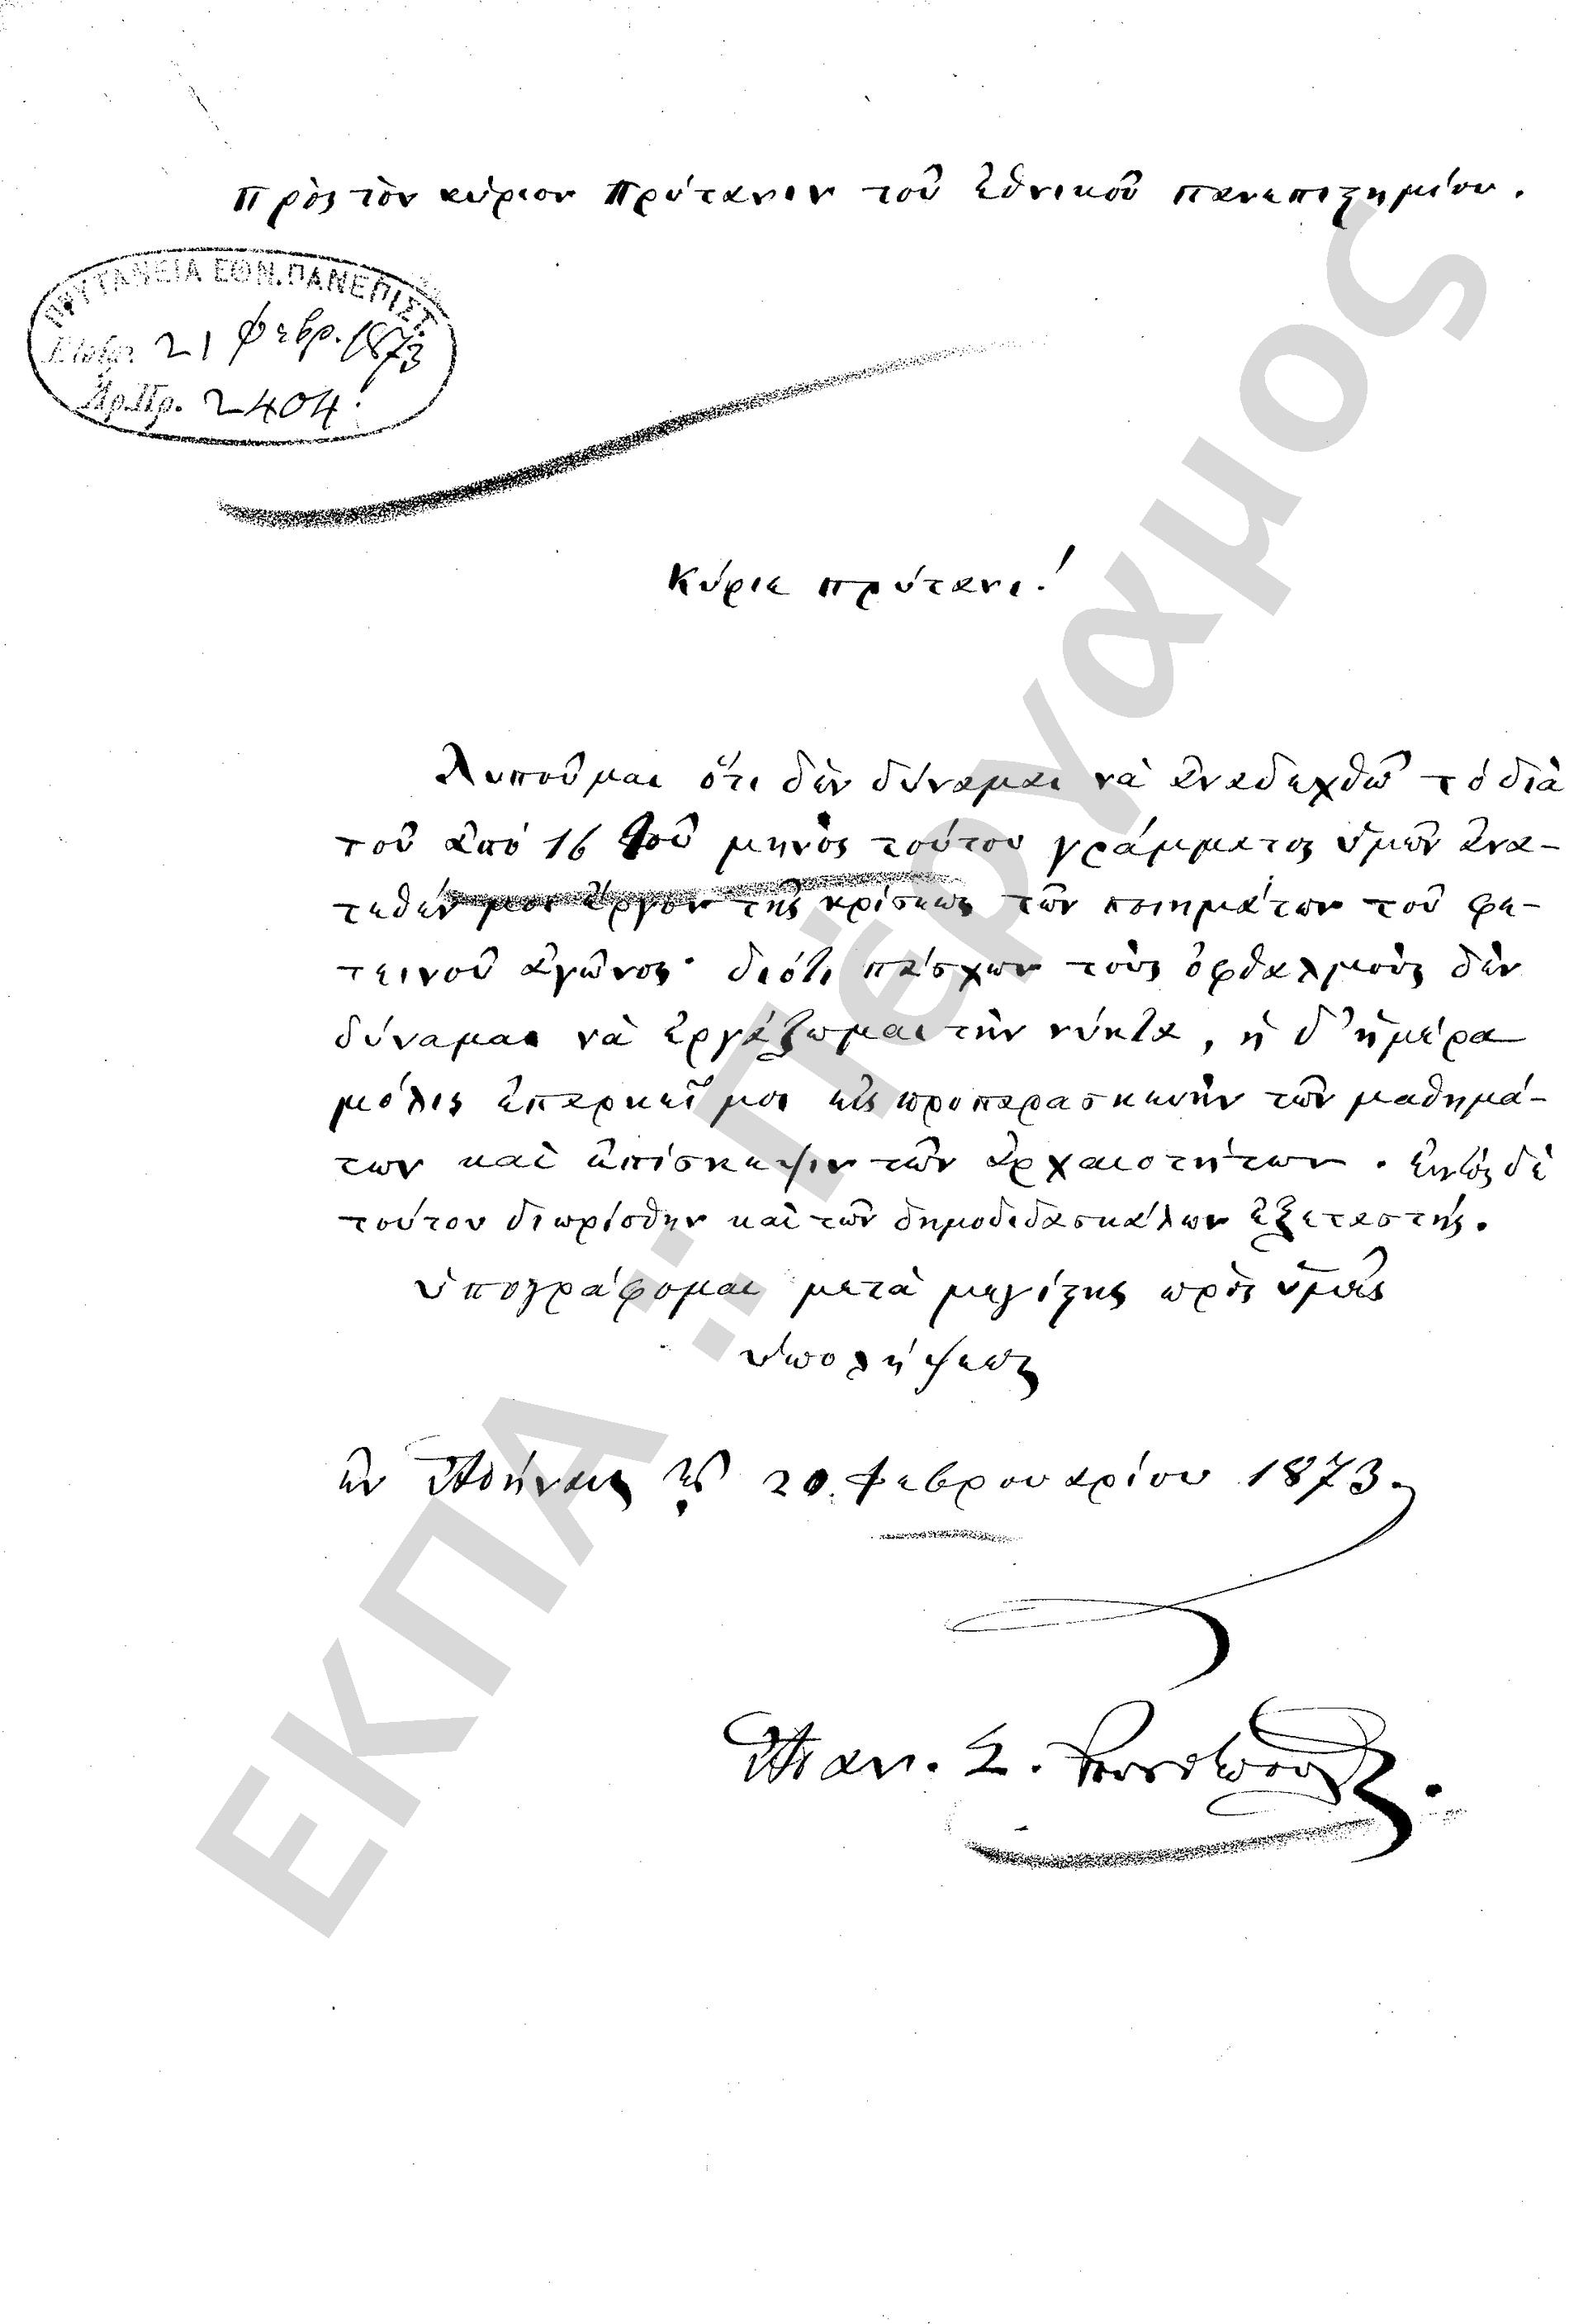 Πρὸς τὸν κύριον Πρύτανιν τοῦ ἐθνικοῦ πανεπιστημίου.
ΠΡΥΤΑΝΕΙΑ ΕΘΝ. ΠΑΝΕΠΙΣΤ.
21 Φεβρ. 1873
Ἀρ. Πρ. 2404
Κύριε πρύτανι!
Λυποῦμαι ὅτι δὲν δύναμαι νὰ ἀναδεχθῶ τὸ διὰ
τοῦ ἀπὸ 16 τοῦ μηνὸς τούτου γράμματος ὑμῶν ἀνα-
τεθέν μοι ἔργον τῆς κρίσεως τῶν ποιημάτων τοῦ φε-
τεινοῦ ἀγῶνος· διότι πάσχων τοὺς ὀφθαλμοὺς δὲν
δύναμαι νὰ ἐργάζωμαι τὴν νύκτα, ἡ δ' ἡμέρα
μόλις ἐπαρκεῖ μοι εἰς προπαρασκευὴν τῶν μαθημά-
των καὶ ἐπίσκεψιν τῶν ἀρχαιοτήτων. Ἐκτὸς δὲ
τούτου διωρίσθην καὶ τῶν δημοδιδασκάλων ἐξεταστής.
Ὑπογράφομαι μετὰ μεγίστης πρὸς ὑμᾶς
ὑπολήψεως
ἐν Ἀθήναις τῇ 20 Φεβρουαρίου 1873.
Ἀθαν. Σ. Ῥουσόπουλος.
ΕΚΠΑ: Πέργαμος